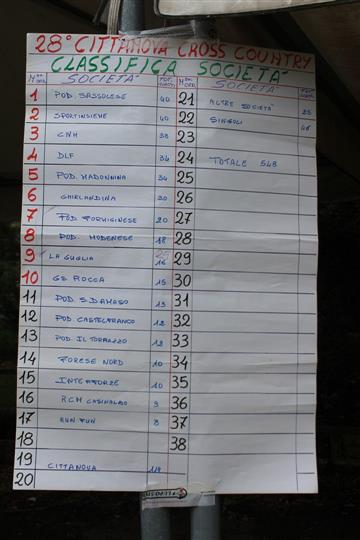 28° CITTANOVA CROSS COUNTRY
CLASSIFICA SOCIETA'
SOCIETA'
1 POD. SASSOLESE 40
2 SPORTINSIEME 40
3 CNH 38
4 DLF 34
5 POD. MADONNINA 34
6 GHIRLANDINA 30
7 POD FORMIGINESE 20
8 POD. MODENESE 18
9 LA GUGLIA 16
10 GS ROCCA 15
11 POD. S.DAMASO 13
12 POD. CASTELFRANCO 12
13 POD. IL TORRAZZO 12
14 FORESE NORD 10
15 INTERFORZE 10
16 RCM CASINALBO 9
17 RUN FUN 8
18
19
CITTANOVA
20
SOCIETA'
21 ALTRE SOCIETÀ
22 SINGOLI
23
24 TOTALE 548
25
26
27
28
29
30
31
32
33
34
35
36
37
38